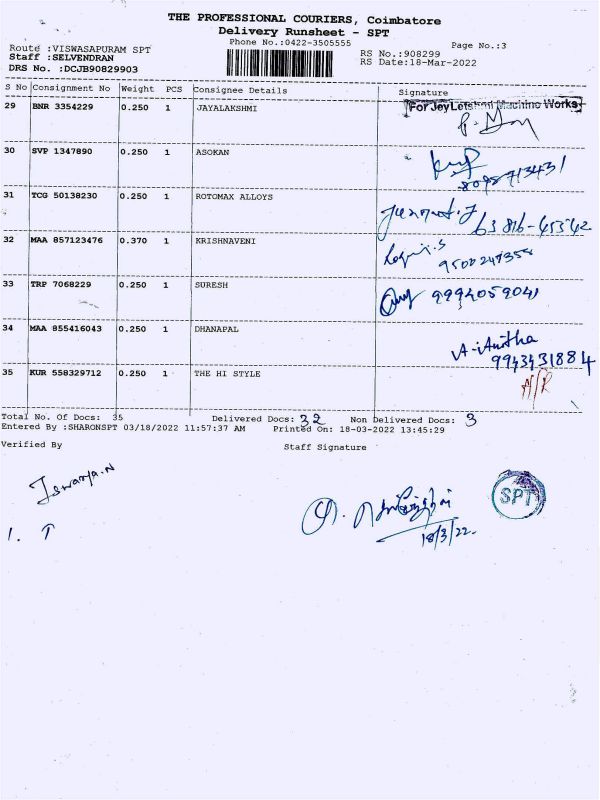 THE PROFESSIONAL COURIERS, Coimbatore
Delivery Runsheet - SPT
Phone No.:0422-3505555
Page No.:3
Route :VISWASAPURAM SPT
Staff :SELVENDRAN
DRS No. :DCJB90829903
RS No.:908299
RS Date:18-Mar-2022
S No Consignment No Weight PCS Consignee Details Signature
29 BNR 3354229 0.250 1 JAYALAKSHMI
For Jey Machine Works
30 SVP 1347890 0.250 1 ASOKAN
8098713431
31 TCG 50138230 0.250 1 ROTOMAX ALLOYS
63816-45342
32 MAA 857123476 0.370 1 KRISHNAVENI
9500247358
33 TRP 7068229 0.250 1 SURESH
9994059041
34 MAA 855416043 0.250 1 DHANAPAL
A. Anitha
9943431884
35 KUR 558329712 0.250 1 THE HI STYLE
A/R
Total No. Of Docs: 35 Delivered Docs: 32 Non Delivered Docs: 3
Entered By :SHARONSPT 03/18/2022 11:57:37 AM Printed On: 18-03-2022 13:45:29
Verified By Staff Signature
Iswarya.N
SPT
18/3/22.
1. T